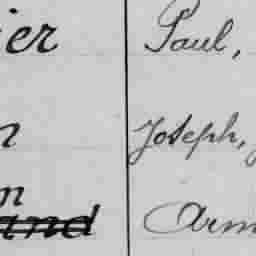 ier Paul,
n Joseph,
m
and Arm